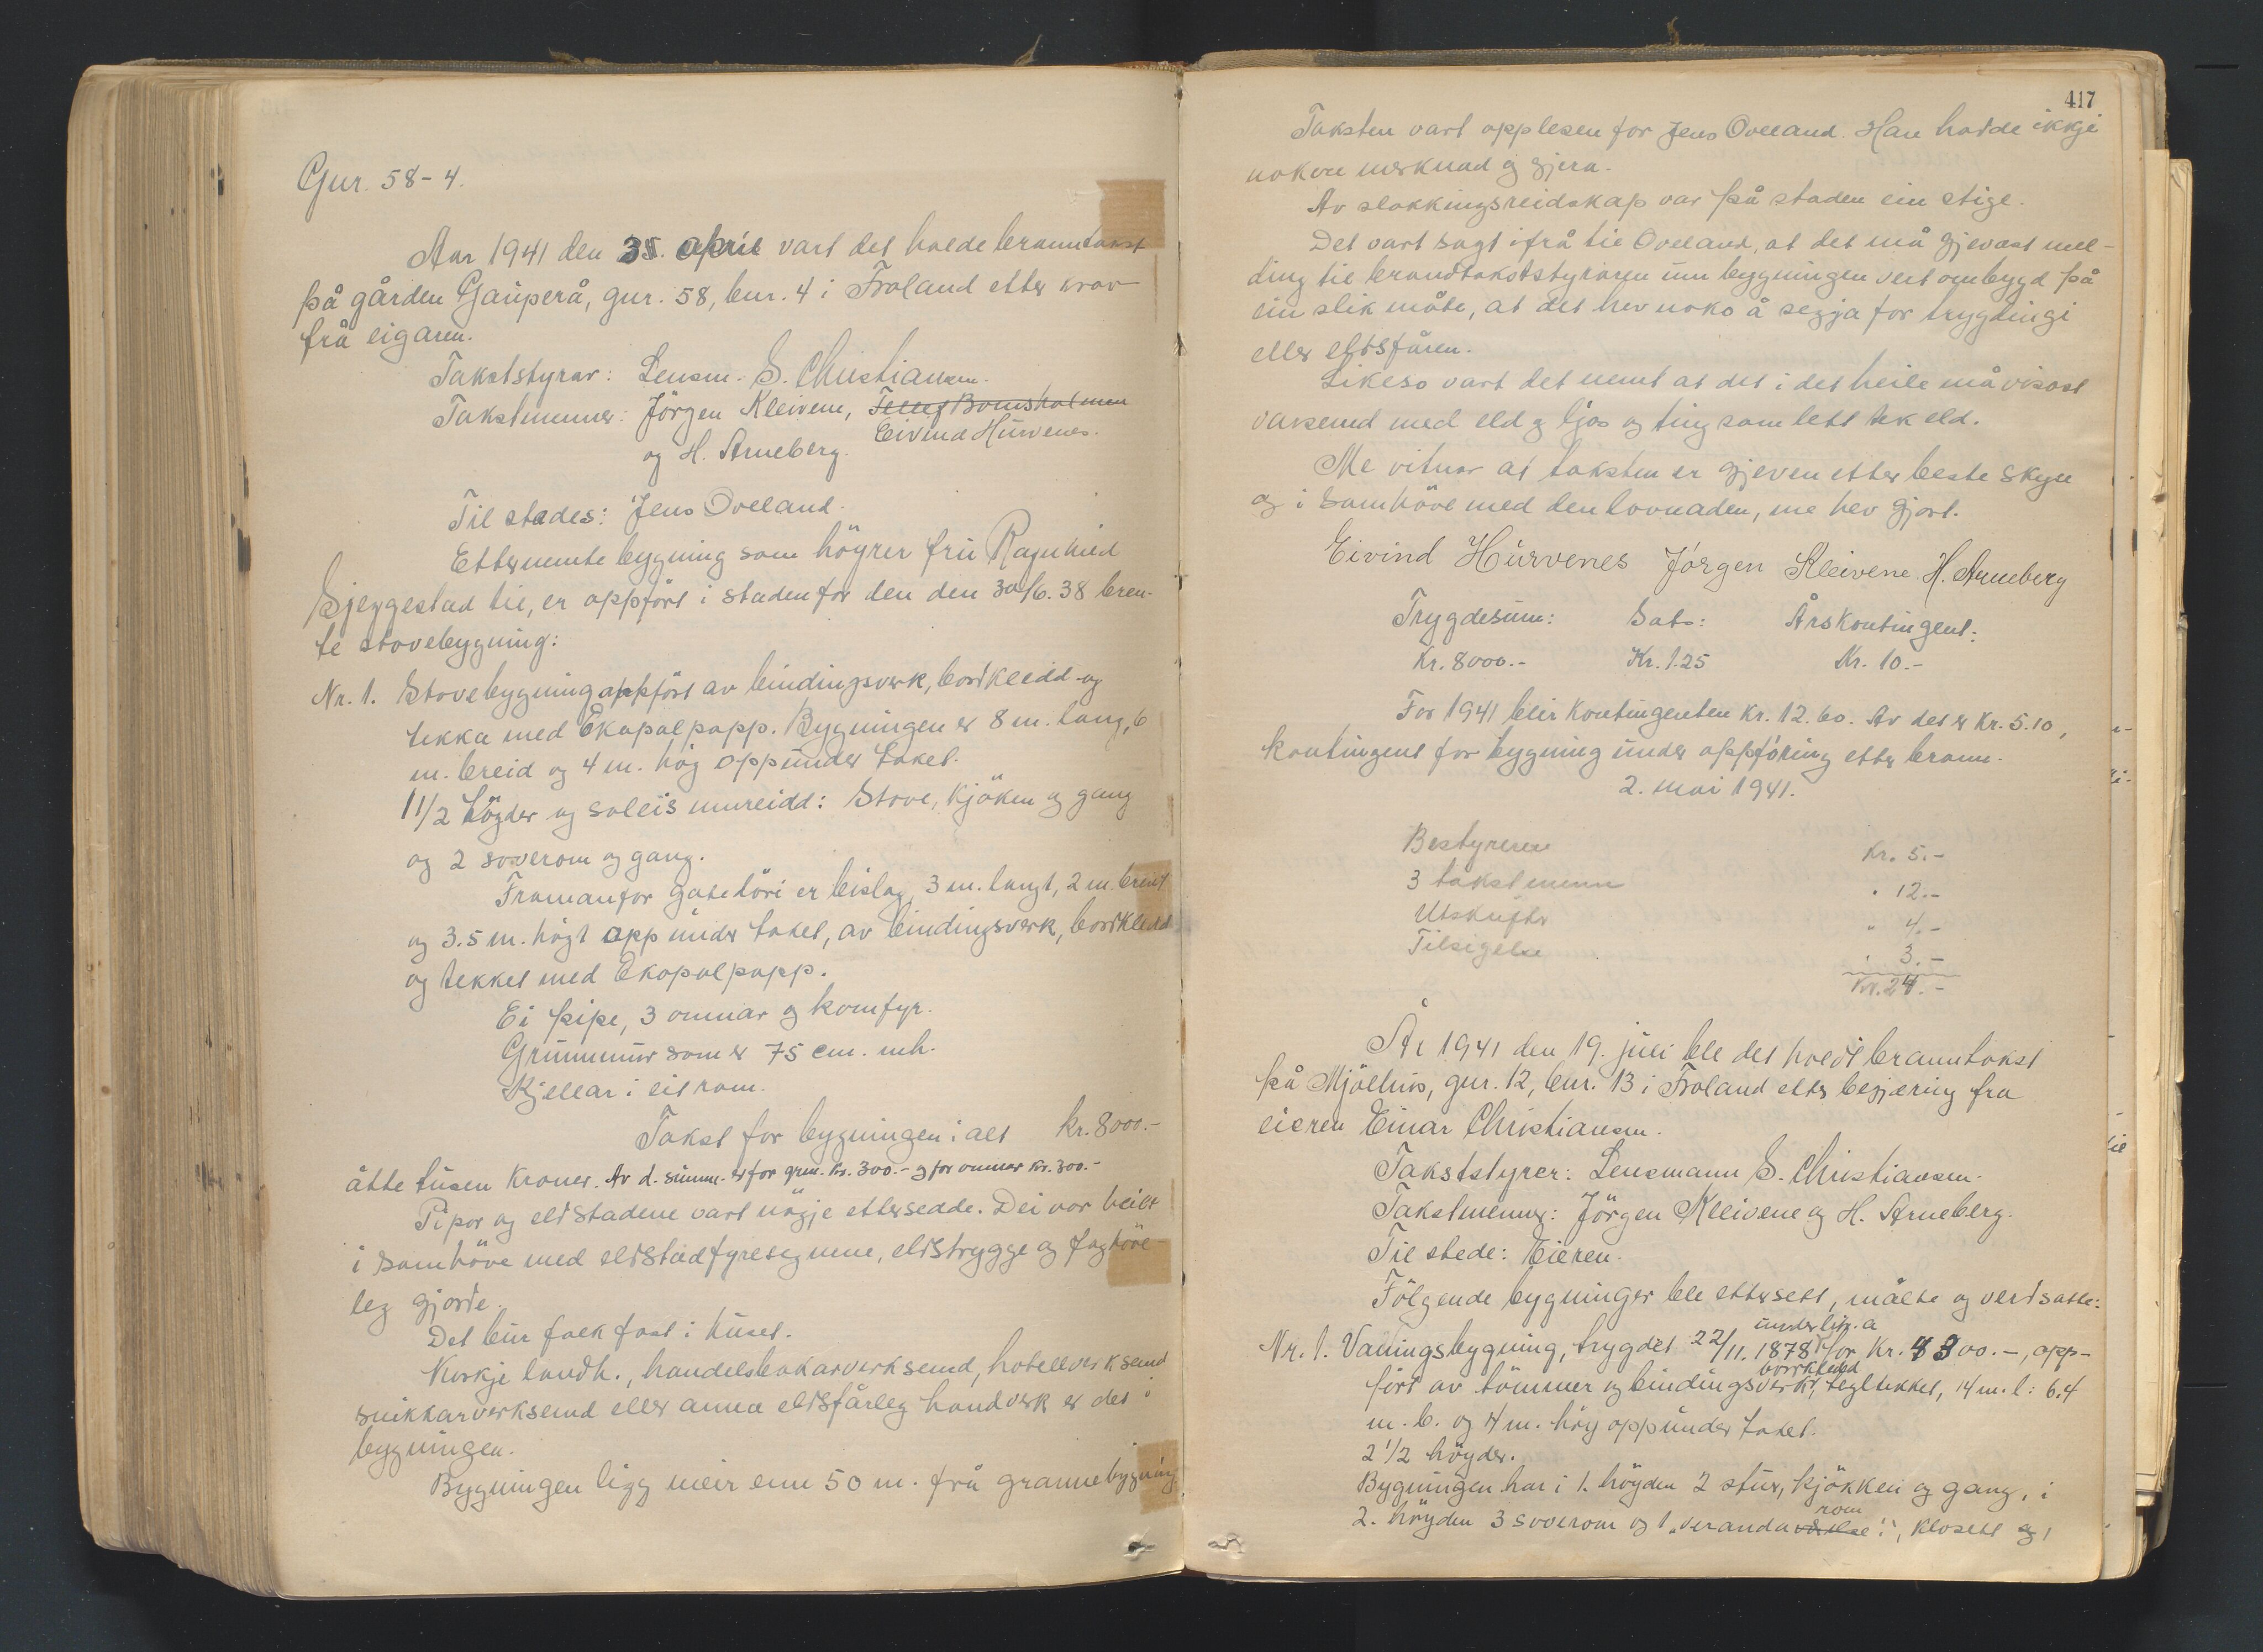 Gnr. 58-4.
Aar 1941 den 25. april vart det halde branntakst
på gården Gauperå, gnr. 58, bnr. 4 i Froland etter krav
frå eigaren.
Takststyrar: Lensm. S. Christiansen.
Takstmenner: Jörgen Kleivene,
Eivind Hurvenes.
og H. Arneberg.
Til stades: Jens Oveland.
Etternemnte bygning som höyrer fru Ragnhild
Sjeggestad til, er oppfört i staden for den den 30/6. 38 bren-
te stovebygning:
Nr. 1. Stovebygning oppfört av bindingsverk, bordkledd og
tekka med Ekopalpapp. Bygningen er 8 m. lang, 6
m. breid og 4 m. hög oppunder taket.
1 1/2 högder og soleis innreidd: Stove, kjöken og gang
og 2 soverom og gang.
Framanfor gatedöri er bislag, 3 m. langt, 2 m. breidt
og 3.5 m. högt opp under taket, av bindingsverk, bordkledd
og tekket med Ekopalpapp.
Ei pipe, 3 omnar og komfyr.
Grunnmur som er 75 cm. mh.
Kjellar i eit rom.
Takst for bygningen i alt kr. 8000.-
åtte tusen kroner. Av d. summ. er for grm. kr. 300.- og for omner kr. 300.-
Pipor og eldstadene vart nögje ettersedde. Dei var heilt
i samhöve med eldstadfyresegnene, eldstrygge og faghöve-
leg gjorde.
Det bur folk fast i huset.
Korkje landh., handelsbakarverksemd, hotellverksemd
snikkarverksemd eller anna eldsfårleg handverk er det i
bygningen.
Bygningen ligg meir enn 50 m. frå grannebygning.
417
Taksten vart opplesen for Jens Oveland. Han hadde ikkje
nokon merknad og gjera.
Av slokkingsreidskap var på staden ein stige.
Det vart sagt ifrå til Oveland, at det må gjevast mel-
ding til brandtakststyraren um bygningen vert ombygd på
ein slik måte, at det hev noko å segja for trygdingi
eller eldsfåren.
Likeso vart det nemt at det i det heile må visast
varsemd med eld og ljos og ting som lett tek eld.
Me vitnar at taksten er gjeven etter beste skyn
og i samhöve med den lovnaden, me hev gjort.
Eivind Hurvenes Jörgen Kleivene. H. Arneberg
Trygdesum: Sats: Årskontingent:
Kr. 8000.- Kr. 1.25 Kr. 10.-
For 1941 blir kontingenten kr. 12.60. Av det er kr. 5.10,
kontingent for bygning under oppföring etter brann.
2. mai 1941.
Bestyreren Kr. 5.-
3 takstmenn " 12.-
Utskrifter " 4.-
Tilsigelse " 3.-
Kr. 24.-
År 1941 den 19. juli ble det holdt branntakst
på Mjölhus, gnr. 12, bnr. 13 i Froland etter begjæring fra
eieren Einar Christiansen.
Takststyrer: Lensmann S. Christiansen.
Takstmenner: Jörgen Kleivene og H. Arneberg.
Til stede: Eieren.
Fölgende bygninger ble ettersett, målte og verdsatte:
under lit. a
Nr. 1. Vaningsbygning, trygdet 22/11. 1878 for kr. 4300.-, opp-
bordkledd
fört av tömmer og bindingsverk, tegltekket, 14 m. l: 6.4
m. b. og 4 m. höy oppunder taket.
2 1/2 höyder.
Bygningen har i 1. höyden 2 stuer, kjökken og gang, i
rom
2. höyden 3 soverom og 1 „veranda", klosett og 1